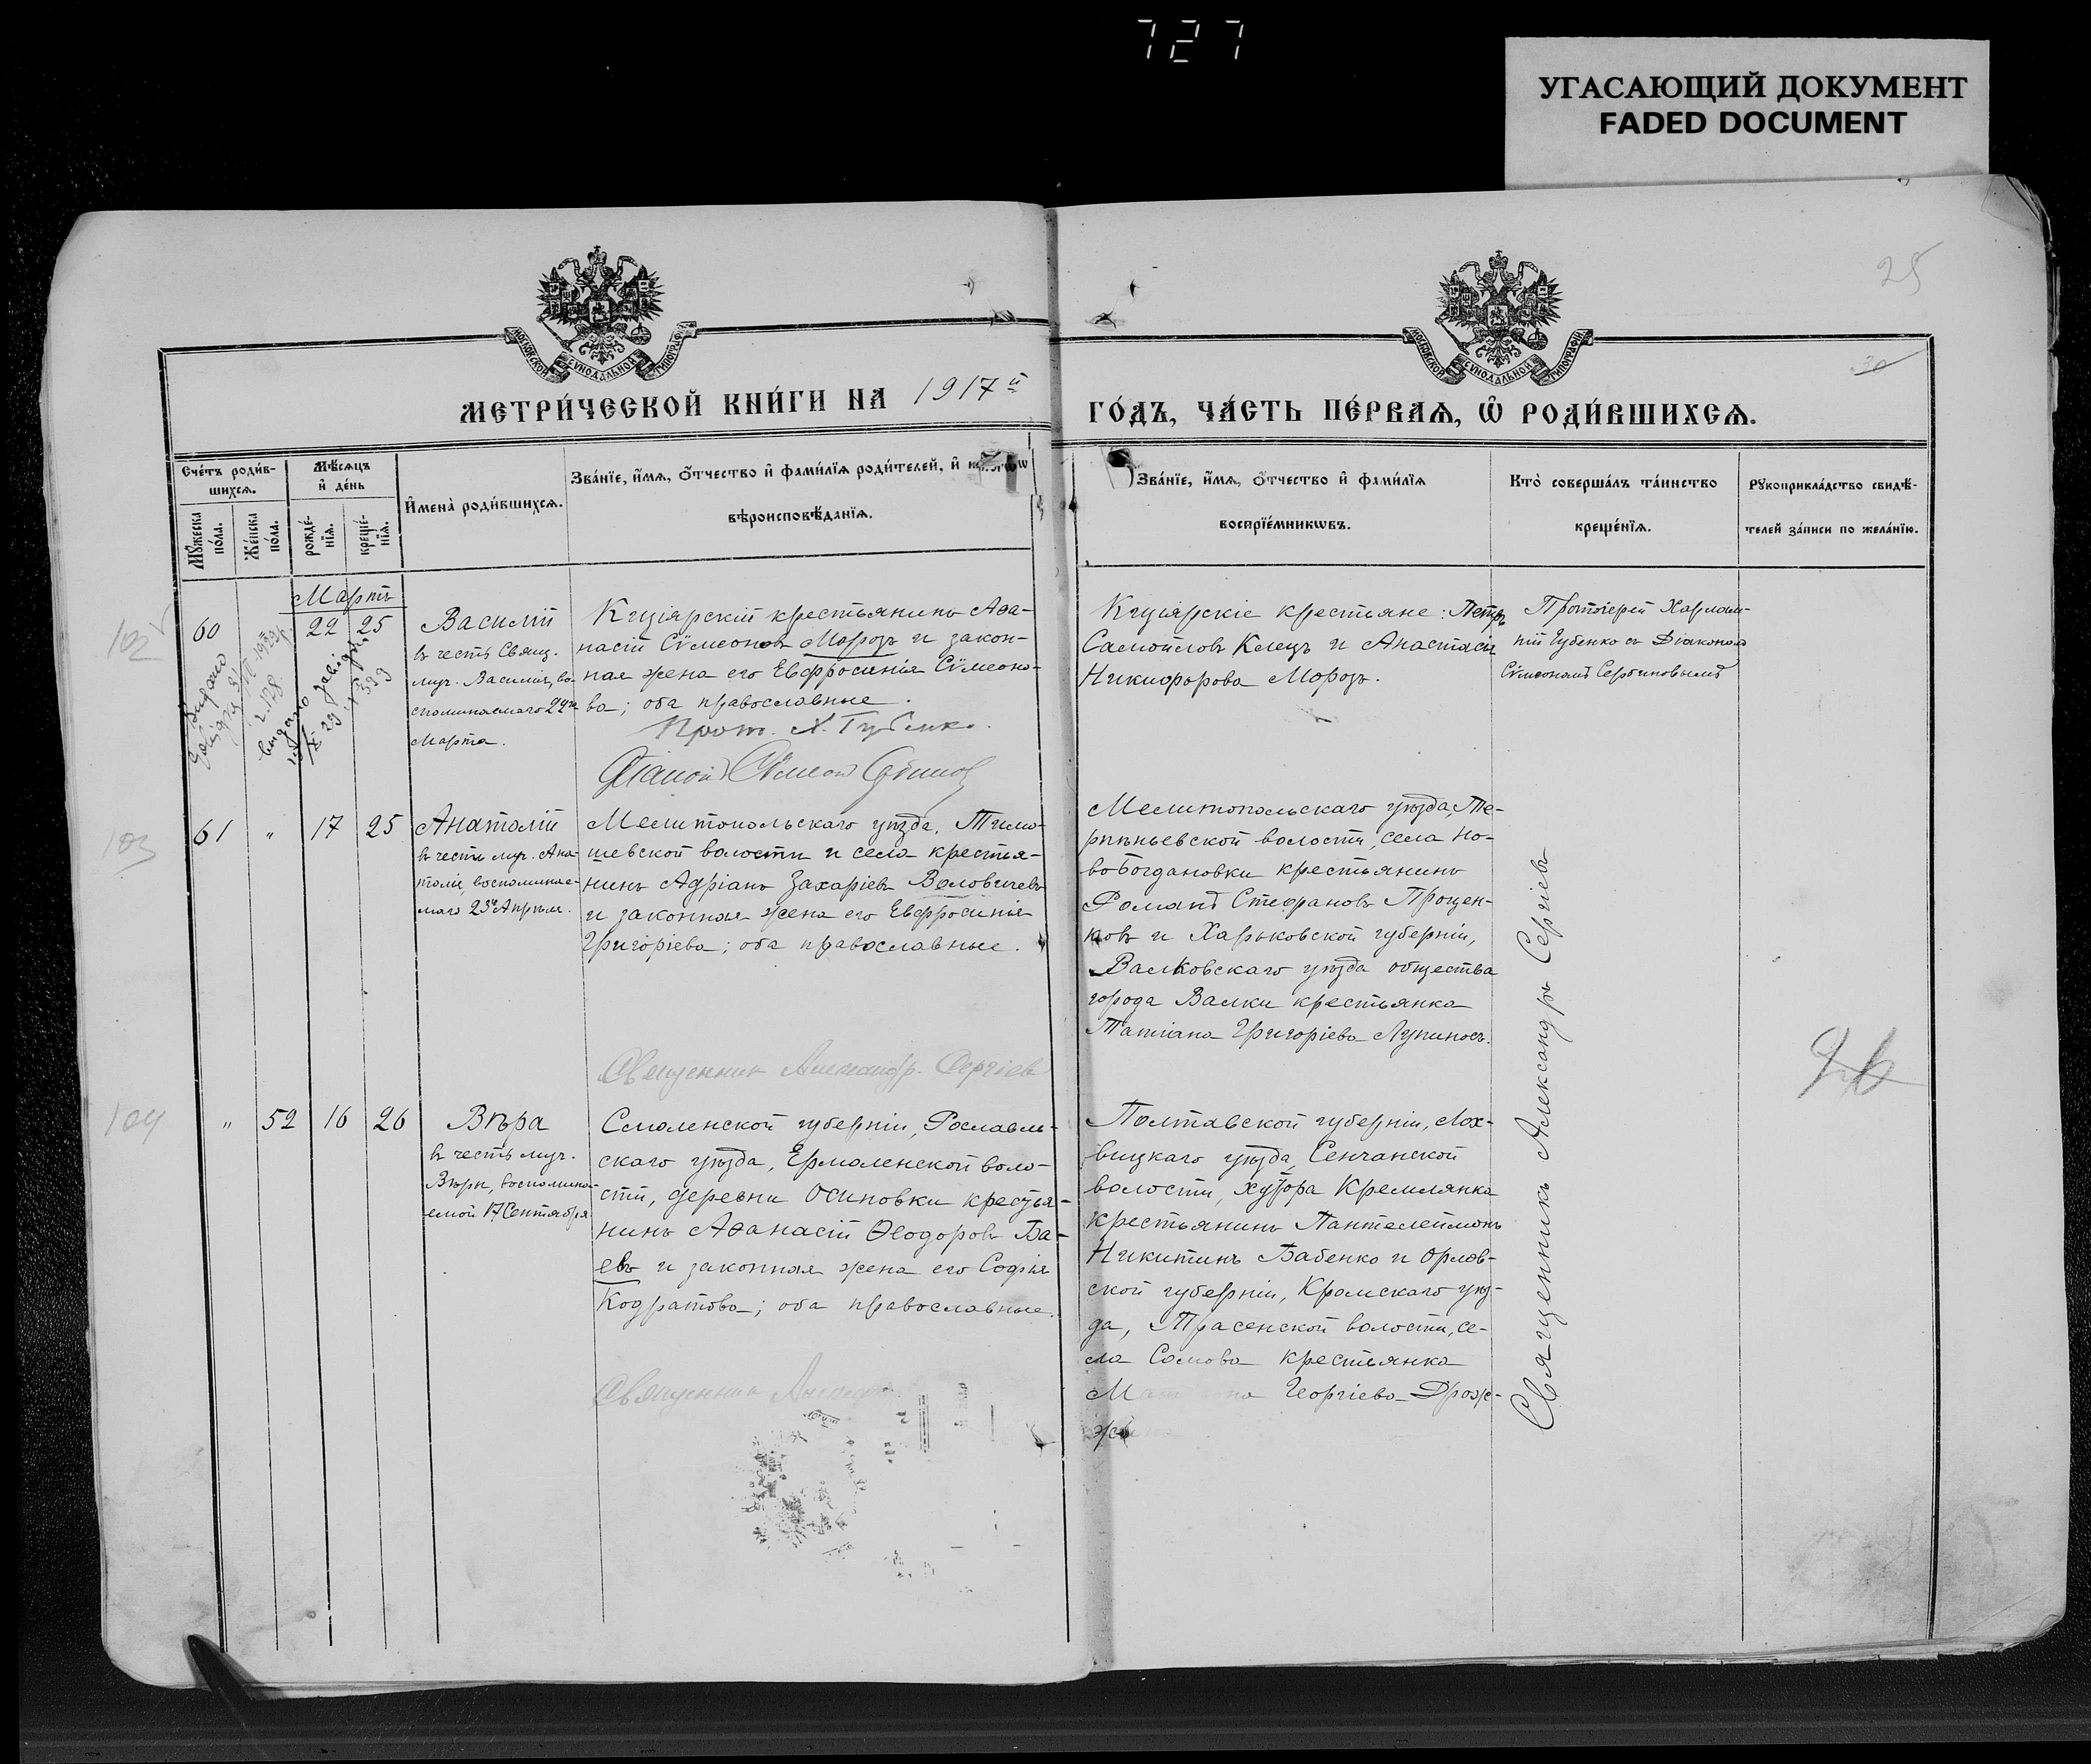 727
УГАСАЮЩИЙ ДОКУМЕНТ
FADED DOCUMENT
25
30
МОСКОВСКОЙ СѴНОДАЛЬНОЙ ТИПОГРАФІИ
МОСКОВСКОЙ СѴНОДАЛЬНОЙ ТИПОГРАФІИ
МЕТРИ́ЧЕСКОЙ КНИ́ГИ НА 1917й
ГО́ДЪ, ЧА́СТЬ ПЕ́РВАѦ, Ѡ РОДИ́ВШИХСѦ.
Сче́тъ роди́в-
шихсѧ.
Мꙋ́жеска по́ла.
Же́нска по́ла.
Мѣ́сѧцъ
и҆ де́нь
рожде́-
нїѧ.
креще́-
нїѧ.
И҆мена̀ роди́вшихсѧ.
Зва́нїе, и҆́мѧ, ѻ҆́тчество и҆ фами́лїѧ роди́телей, и҆
вѣроисповѣ́данїѧ.
Зва́нїе, и҆́мѧ, ѻ҆́тчество и҆ фами́лїѧ
воспрїе́мникѡвъ.
Кто̀ соверша́лъ та́инство
креще́нїѧ.
Рꙋкоприкла́дство свидѣ́-
телей за́писи по жела́нїю.
Мартъ
102
60
22
25
Василій
въ честь Свящ.
муч. Василія, во-
споминаемаго 22го
Марта.
Кизіярскій крестьянинъ Аѳа-
насій Сѵмеоновъ Морозъ и закон-
ная жена его Евфросинія Сѵмеоно-
ва; оба православные.
Прот. Х. Губенко.
Діаконъ Сѵмеонъ
Кизіярскіе крестьяне: Петръ
Самойловъ Клецъ и Анастасія
Никифорова Морозъ.
Протоіерей Харлам-
пій Губенко съ Діакономъ
Сѵмеономъ Сербиновымъ
103
61
"
17
25
Анатолій
въ честь муч. Ана-
толія, воспоминае-
маго 23го Апрѣля.
Мелитопольскаго уѣзда, Тимо-
шевской волости и села крестья-
нинъ Адріанъ Захаріевъ Воловичевъ
и законная жена его Евфросинія
Григоріева; оба православные.
Священникъ Александръ Сергіевъ
Мелитопольскаго уѣзда, Те-
рпѣньевской волости, села Но-
вобогдановки крестьянинъ
Романъ Стефановъ Процен-
ковъ и Харьковской губерніи,
Валковскаго уѣзда общества
города Валки крестьянка
Татіана Григоріева Лупиносъ.
Священникъ Александръ Сергіевъ
26
104
"
52
16
26
Вѣра
въ честь муч.
Вѣры, воспомина-
емой 17 Сентября.
Смоленской губерніи, Рославль-
скаго уѣзда, Ермоленской воло-
сти, деревни Осиновки крестья-
нинъ Аѳанасій Ѳеодоровъ Ба-
евъ и законная жена его Софія
Кодратова; оба православные.
Священникъ
Полтавской губерніи, Лох-
вицкаго уѣзда, Сенчанской
волости, хутора Кремлянка
крестьянинъ Пантелеймонъ
Никитинъ Бабенко и Орлов-
ской губерніи, Кромскаго уѣз-
да, Трасенской волости, се-
ла Сомова крестьянка
Георгіева Дрож-